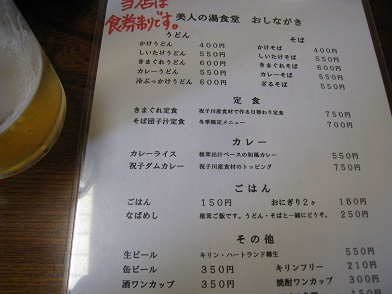 当店は
食券制です。
美人の湯食堂 おしながき
うどん
かけうどん 400円
しいたけうどん 550円
きまぐれうどん 600円
カレーうどん 550円
冷ぶっかけうどん 600円
そば
かけそば 400円
しいたけそば 550円
きまぐれそば 600円
カレーそば 550円
ざるそば 550円
定食
きまぐれ定食 祝子川産食材で作る日替わり定食 750円
そば団子汁定食 冬季限定メニュー 700円
カレー
カレーライス 椎茸出汁ベースの和風カレー 550円
祝子ダムカレー 祝子川産食材のトッピング 750円
ごはん
ごはん 150円 おにぎり2ヶ 180円
なばめし 椎茸ご飯です。うどん・そばと一緒にどうぞ。 250円
その他
生ビール キリン・ハートランド樽生 550円
缶ビール 350円 キリンフリー 210円
酒ワンカップ 350円 焼酎ワンカップ 300円